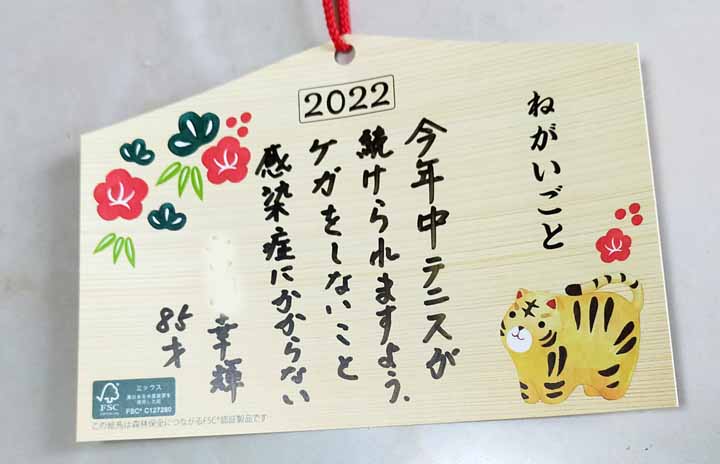 2022
ねがいごと
今年中テニスが
続けられますよう、
ケガをしないこと
感染症にかからない
幸輝
85才
FSC
ミックス
FSC® C127280
この絵馬は森林保全につながるFSC®認証製品です